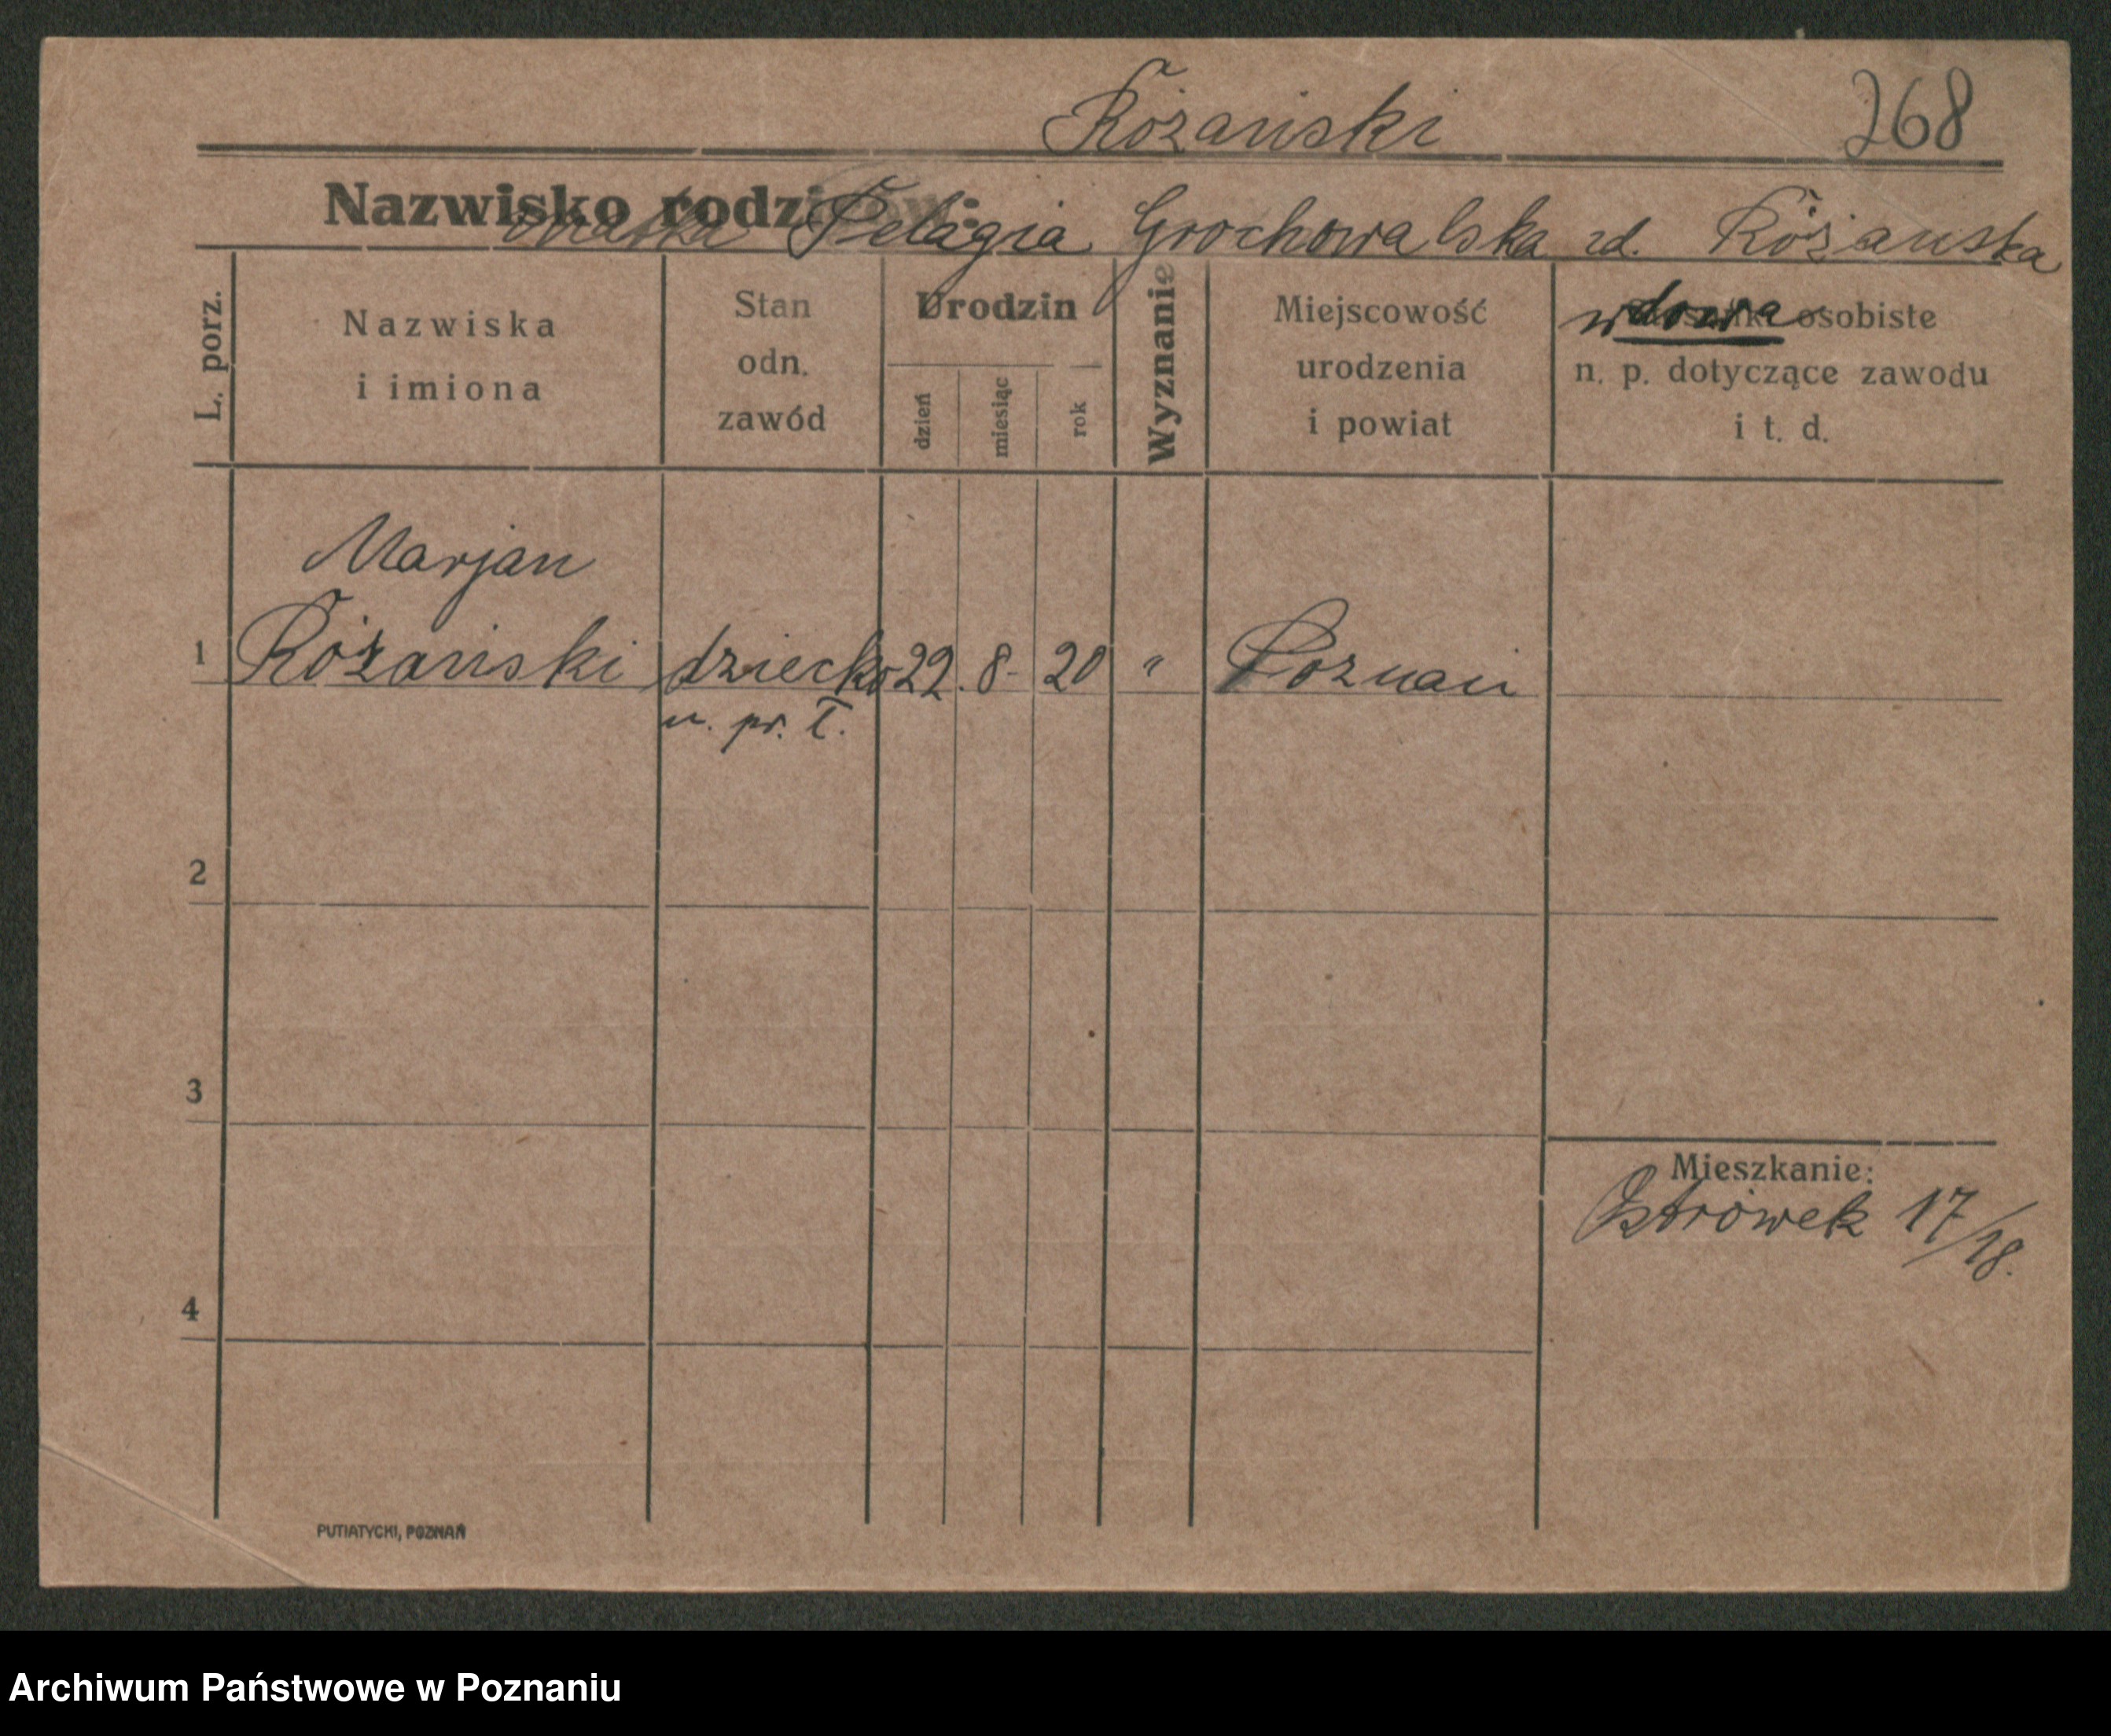 Różański 268
Nazwisko rodziców:
matka Pelagia Grochowalska zd. Różańska
wdowa
L. porz.
Nazwiska
i imiona
Stan
odn.
zawód
Urodzin
dzień
miesiąc
rok
Wyznanie
Miejscowość
urodzenia
i powiat
osobiste
n. p. dotyczące zawodu
i t. d.
Marjan
1 Różański dziecko 22. 8. 20 " Poznań
n. pr. I.
2
3
4
Mieszkanie:
Ostrówek 17/18.
PUTIATYCKI, POZNAŃ
Archiwum Państwowe w Poznaniu